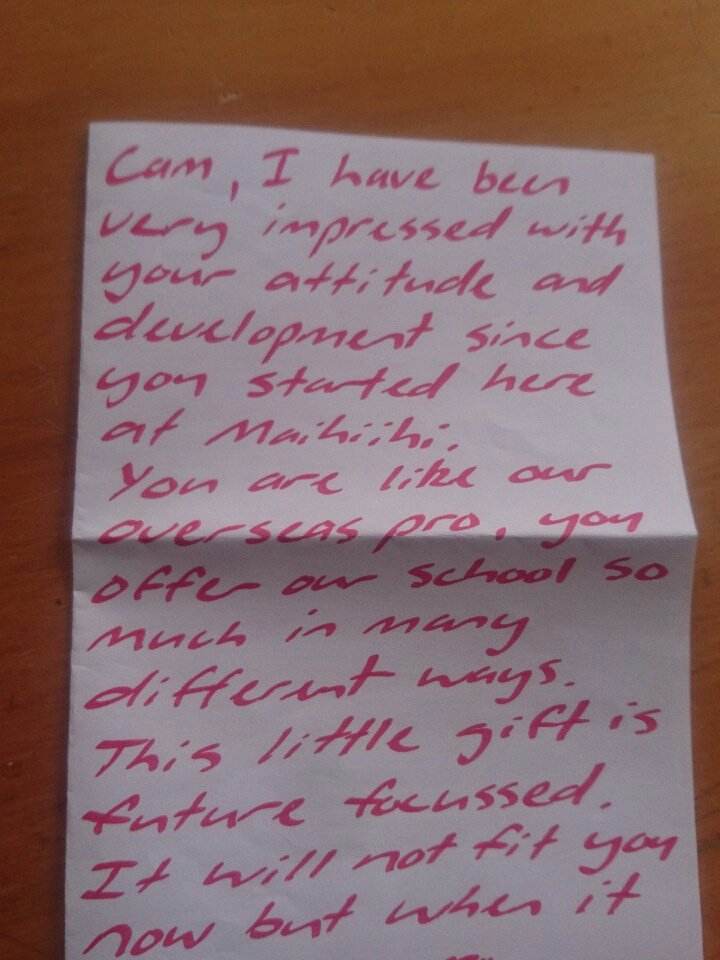 Cam, I have been
very impressed with
your attitude and
development since
you started here
at Maihiihi.
You are like our
overseas pro, you
offer our school so
much in many
different ways.
This little gift is
future focussed.
It will not fit you
now but when it